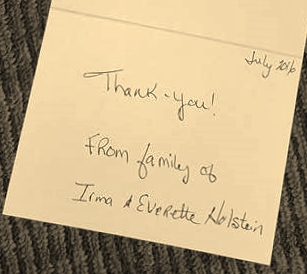 July 2016
Thank-you!
From family of
Irma & Everette Holstein